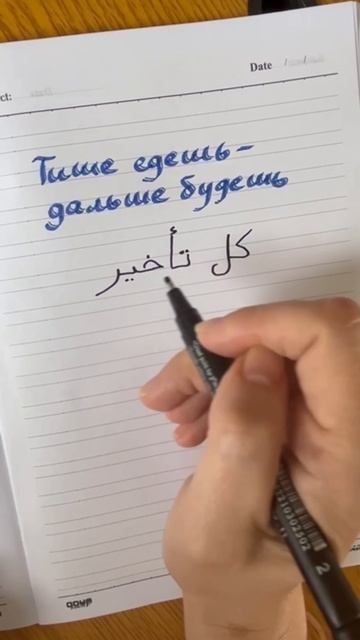 ct:
Date / /
Тише едешь-
дальше будешь
كل تأخير
7210302502
2